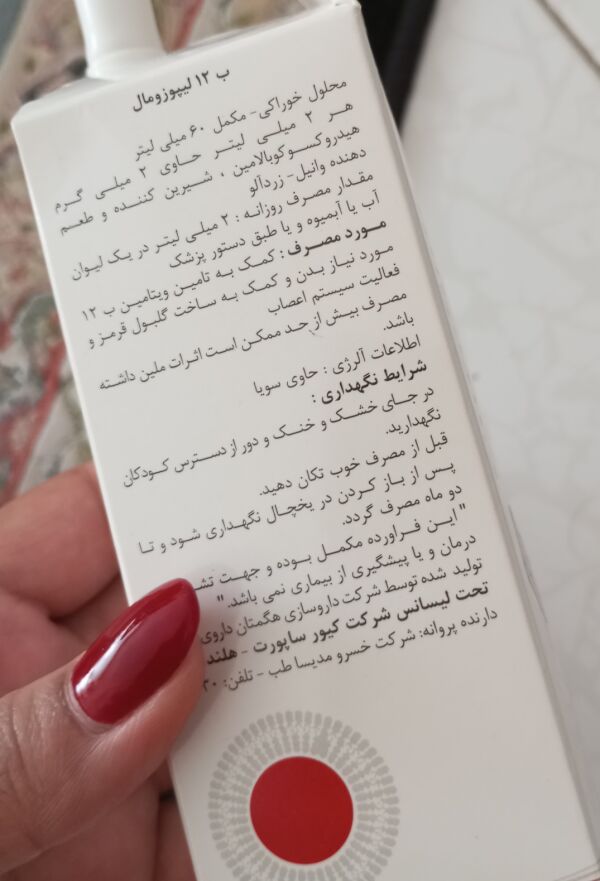 ب ۱۲ لیپوزومال
محلول خوراکی- مکمل ۶۰ میلی لیتر
هر ۲ میلی لیتر حاوی ۲ میلی گرم
هیدروکسوکوبالامین ، شیرین کننده و طعم
دهنده وانیل- زردآلو
مقدار مصرف روزانه : ۲ میلی لیتر در یک لیوان
آب یا آبمیوه و یا طبق دستور پزشک
مورد مصرف : کمک به تامین ویتامین ب ۱۲
مورد نیاز بدن و کمک به ساخت گلبول قرمز و
فعالیت سیستم اعصاب
مصرف بیش از حد ممکن است اثرات ملین داشته
باشد.
اطلاعات آلرژی : حاوی سویا
شرایط نگهداری :
در جای خشک و خنک و دور از دسترس کودکان
نگهدارید.
قبل از مصرف خوب تکان دهید.
پس از باز کردن در یخچال نگهداری شود و تا
دو ماه مصرف گردد.
" این فراورده مکمل بوده و جهت
درمان و یا پیشگیری از بیماری نمی باشد. "
تولید شده توسط شرکت داروسازی هگمتان داروی
تحت لیسانس شرکت کیور ساپورت - هلند
دارنده پروانه: شرکت خسرو مدیسا طب - تلفن: